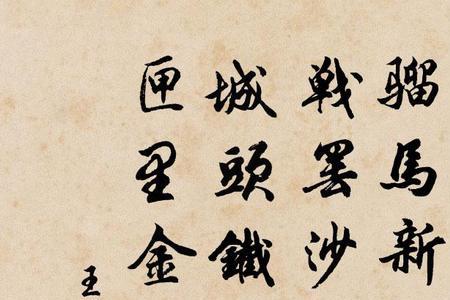 騮馬新
戰罷沙
城頭鐵
匣里金
王